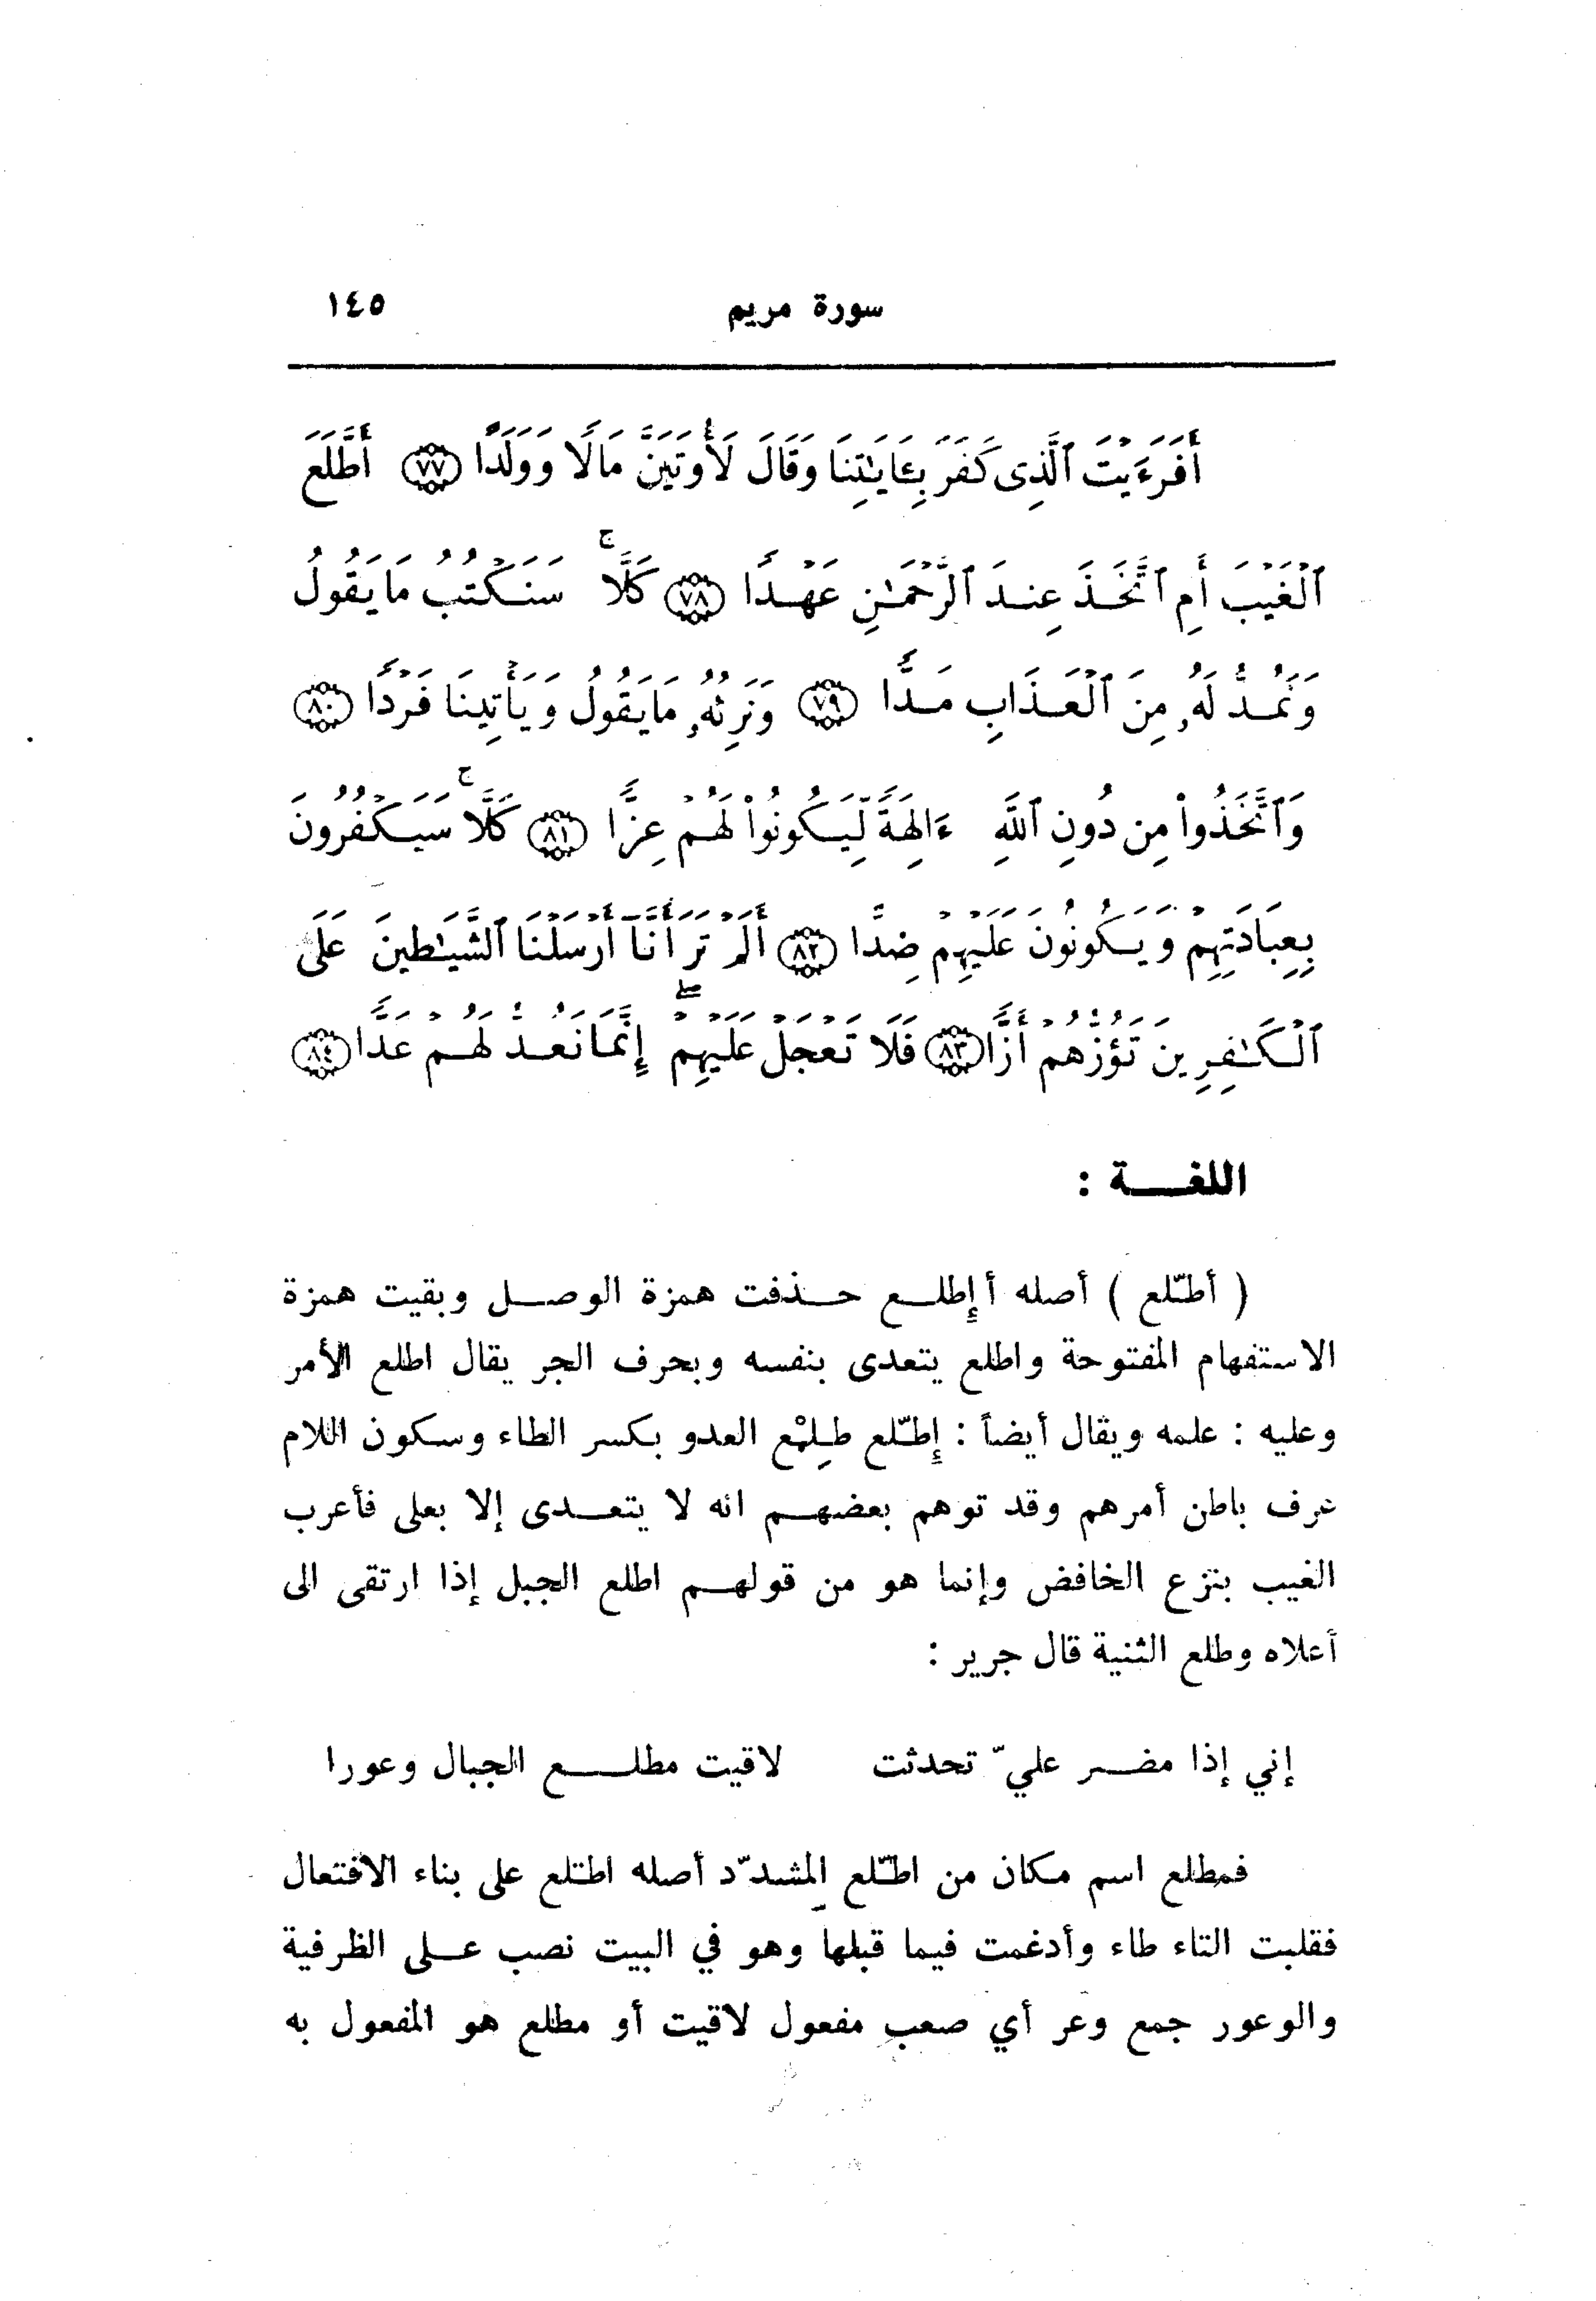 سورة مريم ١٤٥
أَفَرَءَيْتَ ٱلَّذِى كَفَرَ بِـَٔايَـٰتِنَا وَقَالَ لَأُوتَيَنَّ مَالًا وَوَلَدًا ﴿٧٧﴾ أَطَّلَعَ
ٱلْغَيْبَ أَمِ ٱتَّخَذَ عِندَ ٱلرَّحْمَـٰنِ عَهْدًا ﴿٧٨﴾ كَلَّا ۚ سَنَكْتُبُ مَا يَقُولُ
وَنَمُدُّ لَهُۥ مِنَ ٱلْعَذَابِ مَدًّا ﴿٧٩﴾ وَنَرِثُهُۥ مَا يَقُولُ وَيَأْتِينَا فَرْدًا ﴿٨٠﴾
وَٱتَّخَذُوا۟ مِن دُونِ ٱللَّهِ ءَالِهَةً لِّيَكُونُوا۟ لَهُمْ عِزًّا ﴿٨١﴾ كَلَّا ۚ سَيَكْفُرُونَ
بِعِبَادَتِهِمْ وَيَكُونُونَ عَلَيْهِمْ ضِدًّا ﴿٨٢﴾ أَلَمْ تَرَ أَنَّآ أَرْسَلْنَا ٱلشَّيَـٰطِينَ عَلَى
ٱلْكَـٰفِرِينَ تَؤُزُّهُمْ أَزًّا ﴿٨٣﴾ فَلَا تَعْجَلْ عَلَيْهِمْ ۖ إِنَّمَا نَعُدُّ لَهُمْ عَدًّا ﴿٨٤﴾
اللغـــة :
( أطّلع ) أصله أإطلع حذفت همزة الوصل وبقيت همزة
الاستفهام المفتوحة واطلع يتعدى بنفسه وبحرف الجر يقال اطلع الأمر
وعليه : علمه ويقال أيضاً : إطّلع طِلْع العدو بكسر الطاء وسكون اللام
عرف باطن أمرهم وقد توهم بعضهم انه لا يتعدى إلا بعلى فأعرب
الغيب بنزع الخافض وإنما هو من قولهم اطلع الجبل إذا ارتقى الى
أعلاه وطلع الثنية قال جرير :
إني إذا مضر عليّ تحدثت لاقيت مطلع الجبال وعورا
فمطلع اسم مكان من اطّلع المشدّد أصله اطتلع على بناء الافتعال
فقلبت التاء طاء وأدغمت فيما قبلها وهو في البيت نصب على الظرفية
والوعور جمع وعر أي صعب مفعول لاقيت أو مطلع هو المفعول به